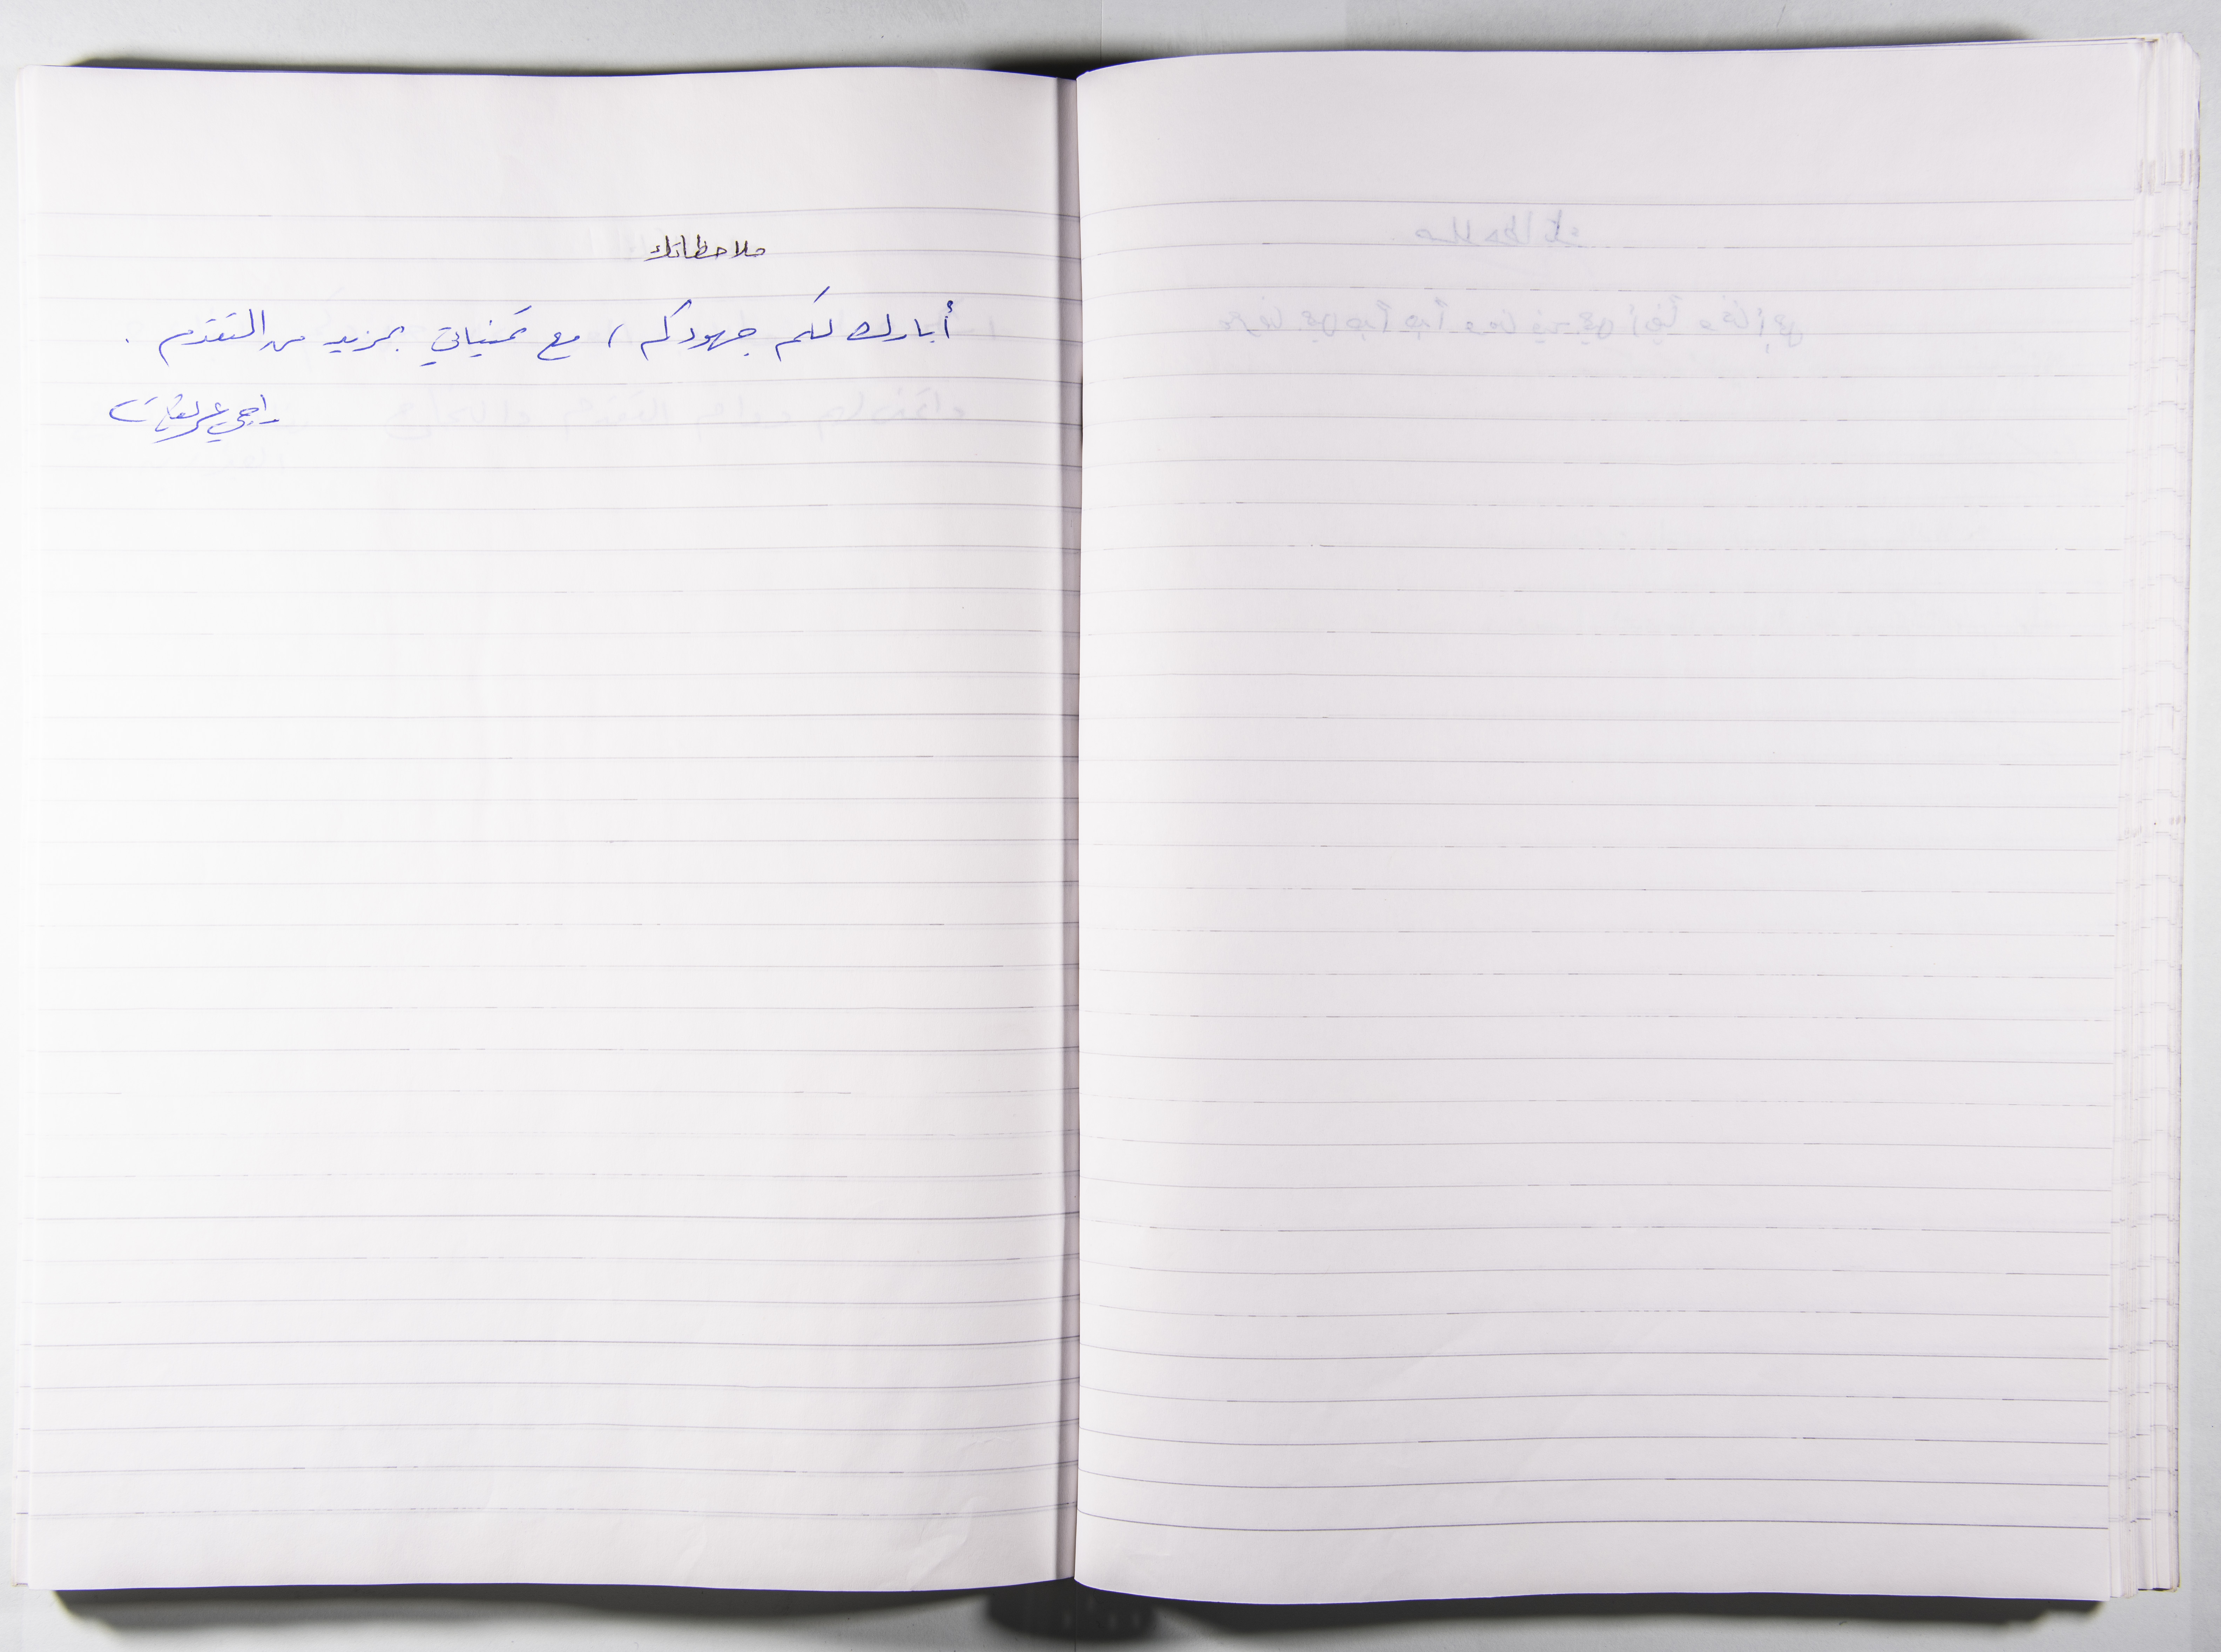 ملاحظاتك
أبارك لكم جهودكم، مع تمنياتي بمزيد من التقدم.
راجي عريقات